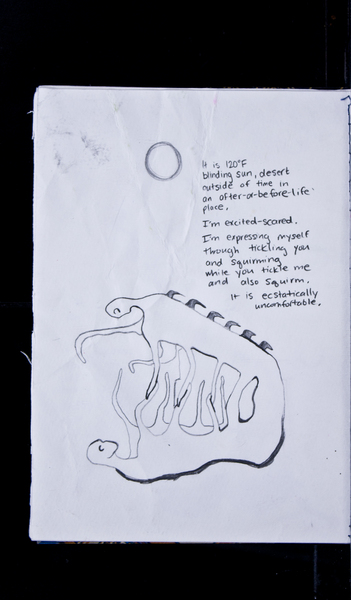 It is 120°F
blinding sun, desert
outside of time in
an after-or-before-life
place.
I'm excited-scared.
I'm expressing myself
through tickling you
and squirming
while you tickle me
and also squirm.
It is ecstatically
uncomfortable.